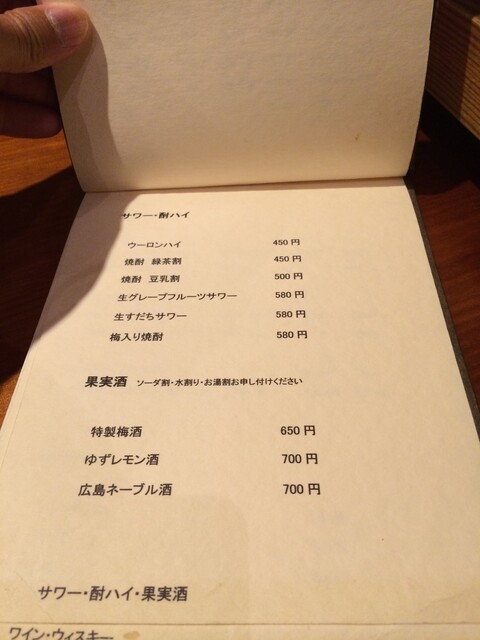 サワー・酎ハイ
ウーロンハイ 450 円
焼酎 緑茶割 450 円
焼酎 豆乳割 500 円
生グレープフルーツサワー 580 円
生すだちサワー 580 円
梅入り焼酎 580 円
果実酒 ソーダ割・水割り・お湯割お申し付けください
特製梅酒 650 円
ゆずレモン酒 700 円
広島ネーブル酒 700 円
サワー・酎ハイ・果実酒
ワイン・ウィスキー